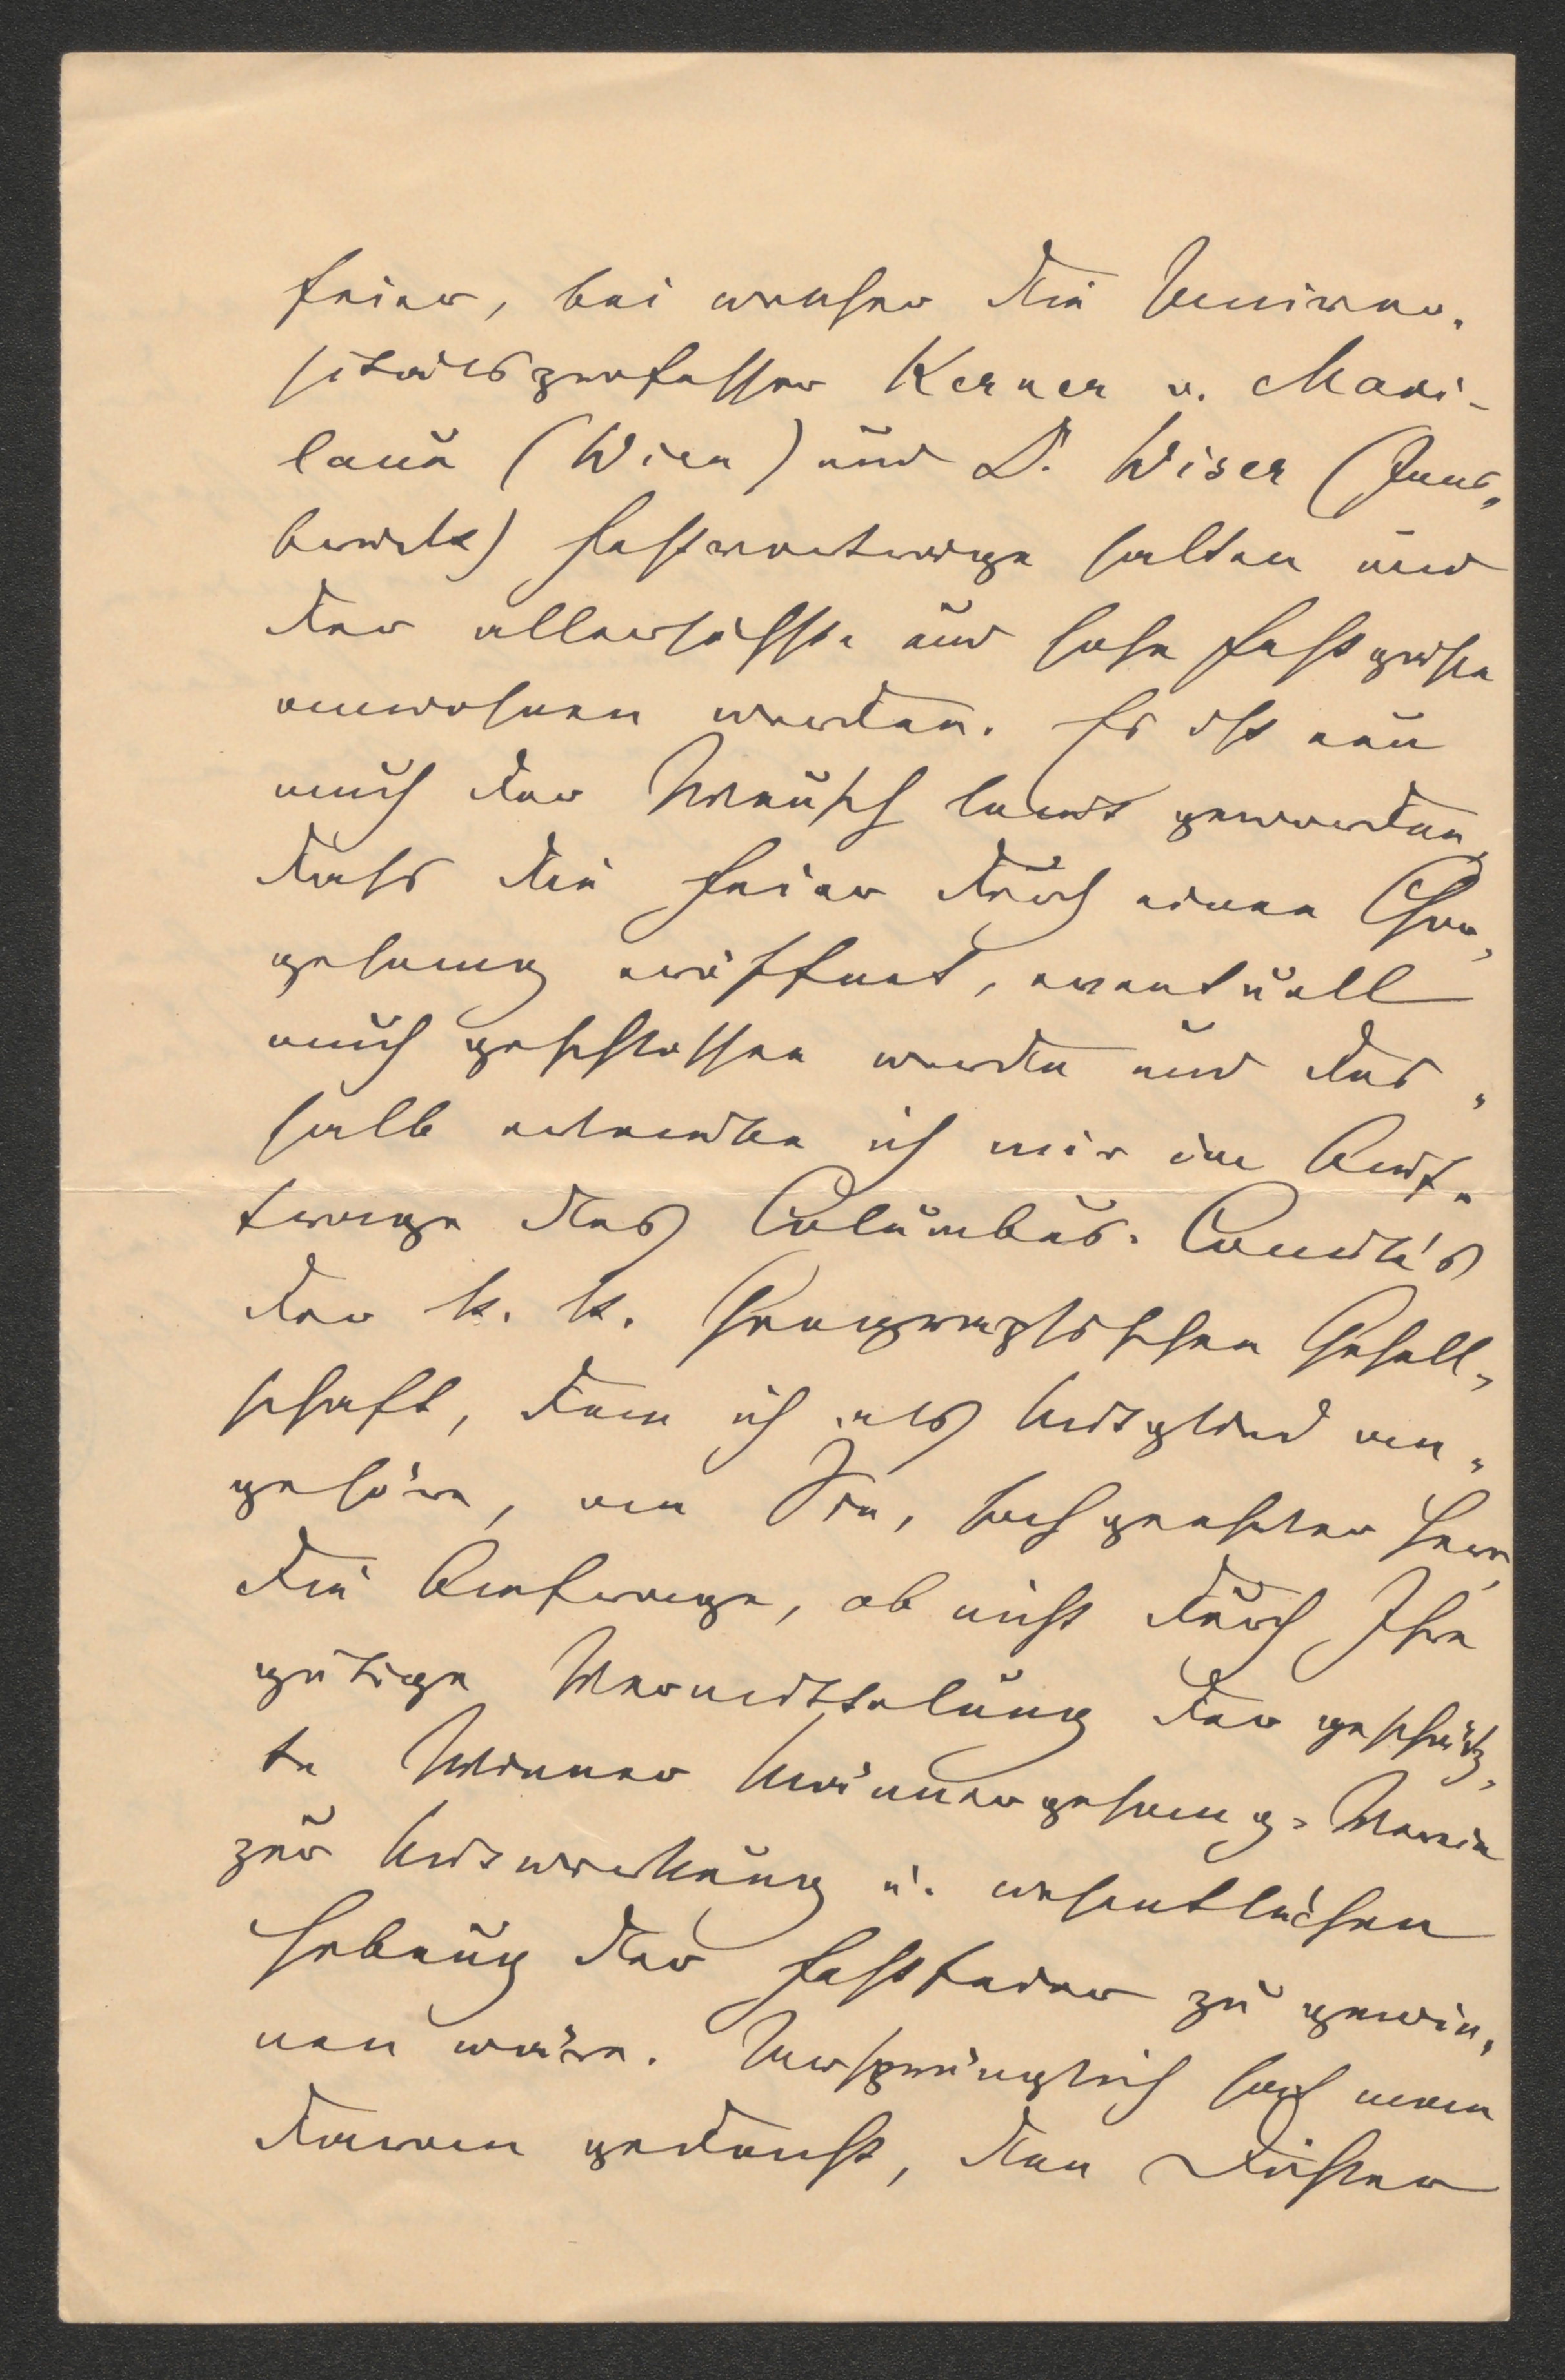 feier, bei welcher die Univer-
sitätsprofessor Kerner v. Mari-
laun (Wien) und D. Wiser (Inns-
bruck) Festvorträge halten und
der allerhöchste und hohe Festgäste
anwohnen werden. Es ist nun
auch der Wunsch laut geworden,
dass die Feier durch einen Chor-
gesang eröffnet, eventuell
auch geschlossen werde und des-
halb erlaube ich mir im Auf-
trage des Columbus-Comité's
der k. k. Geographischen Gesell-
schaft, dem ich als Mitglied an-
gehöre, an Sie, hochgeehrter Herr,
die Anfrage, ob nicht durch Ihre
gütige Vermittelung der geschätz-
te Wiener Männergesang-Verein
zur Mitwirkung u. wesentlichen
Hebung der Festfeier zu gewin-
nen wäre. Ursprünglich hat man
daran gedacht, den Dichter